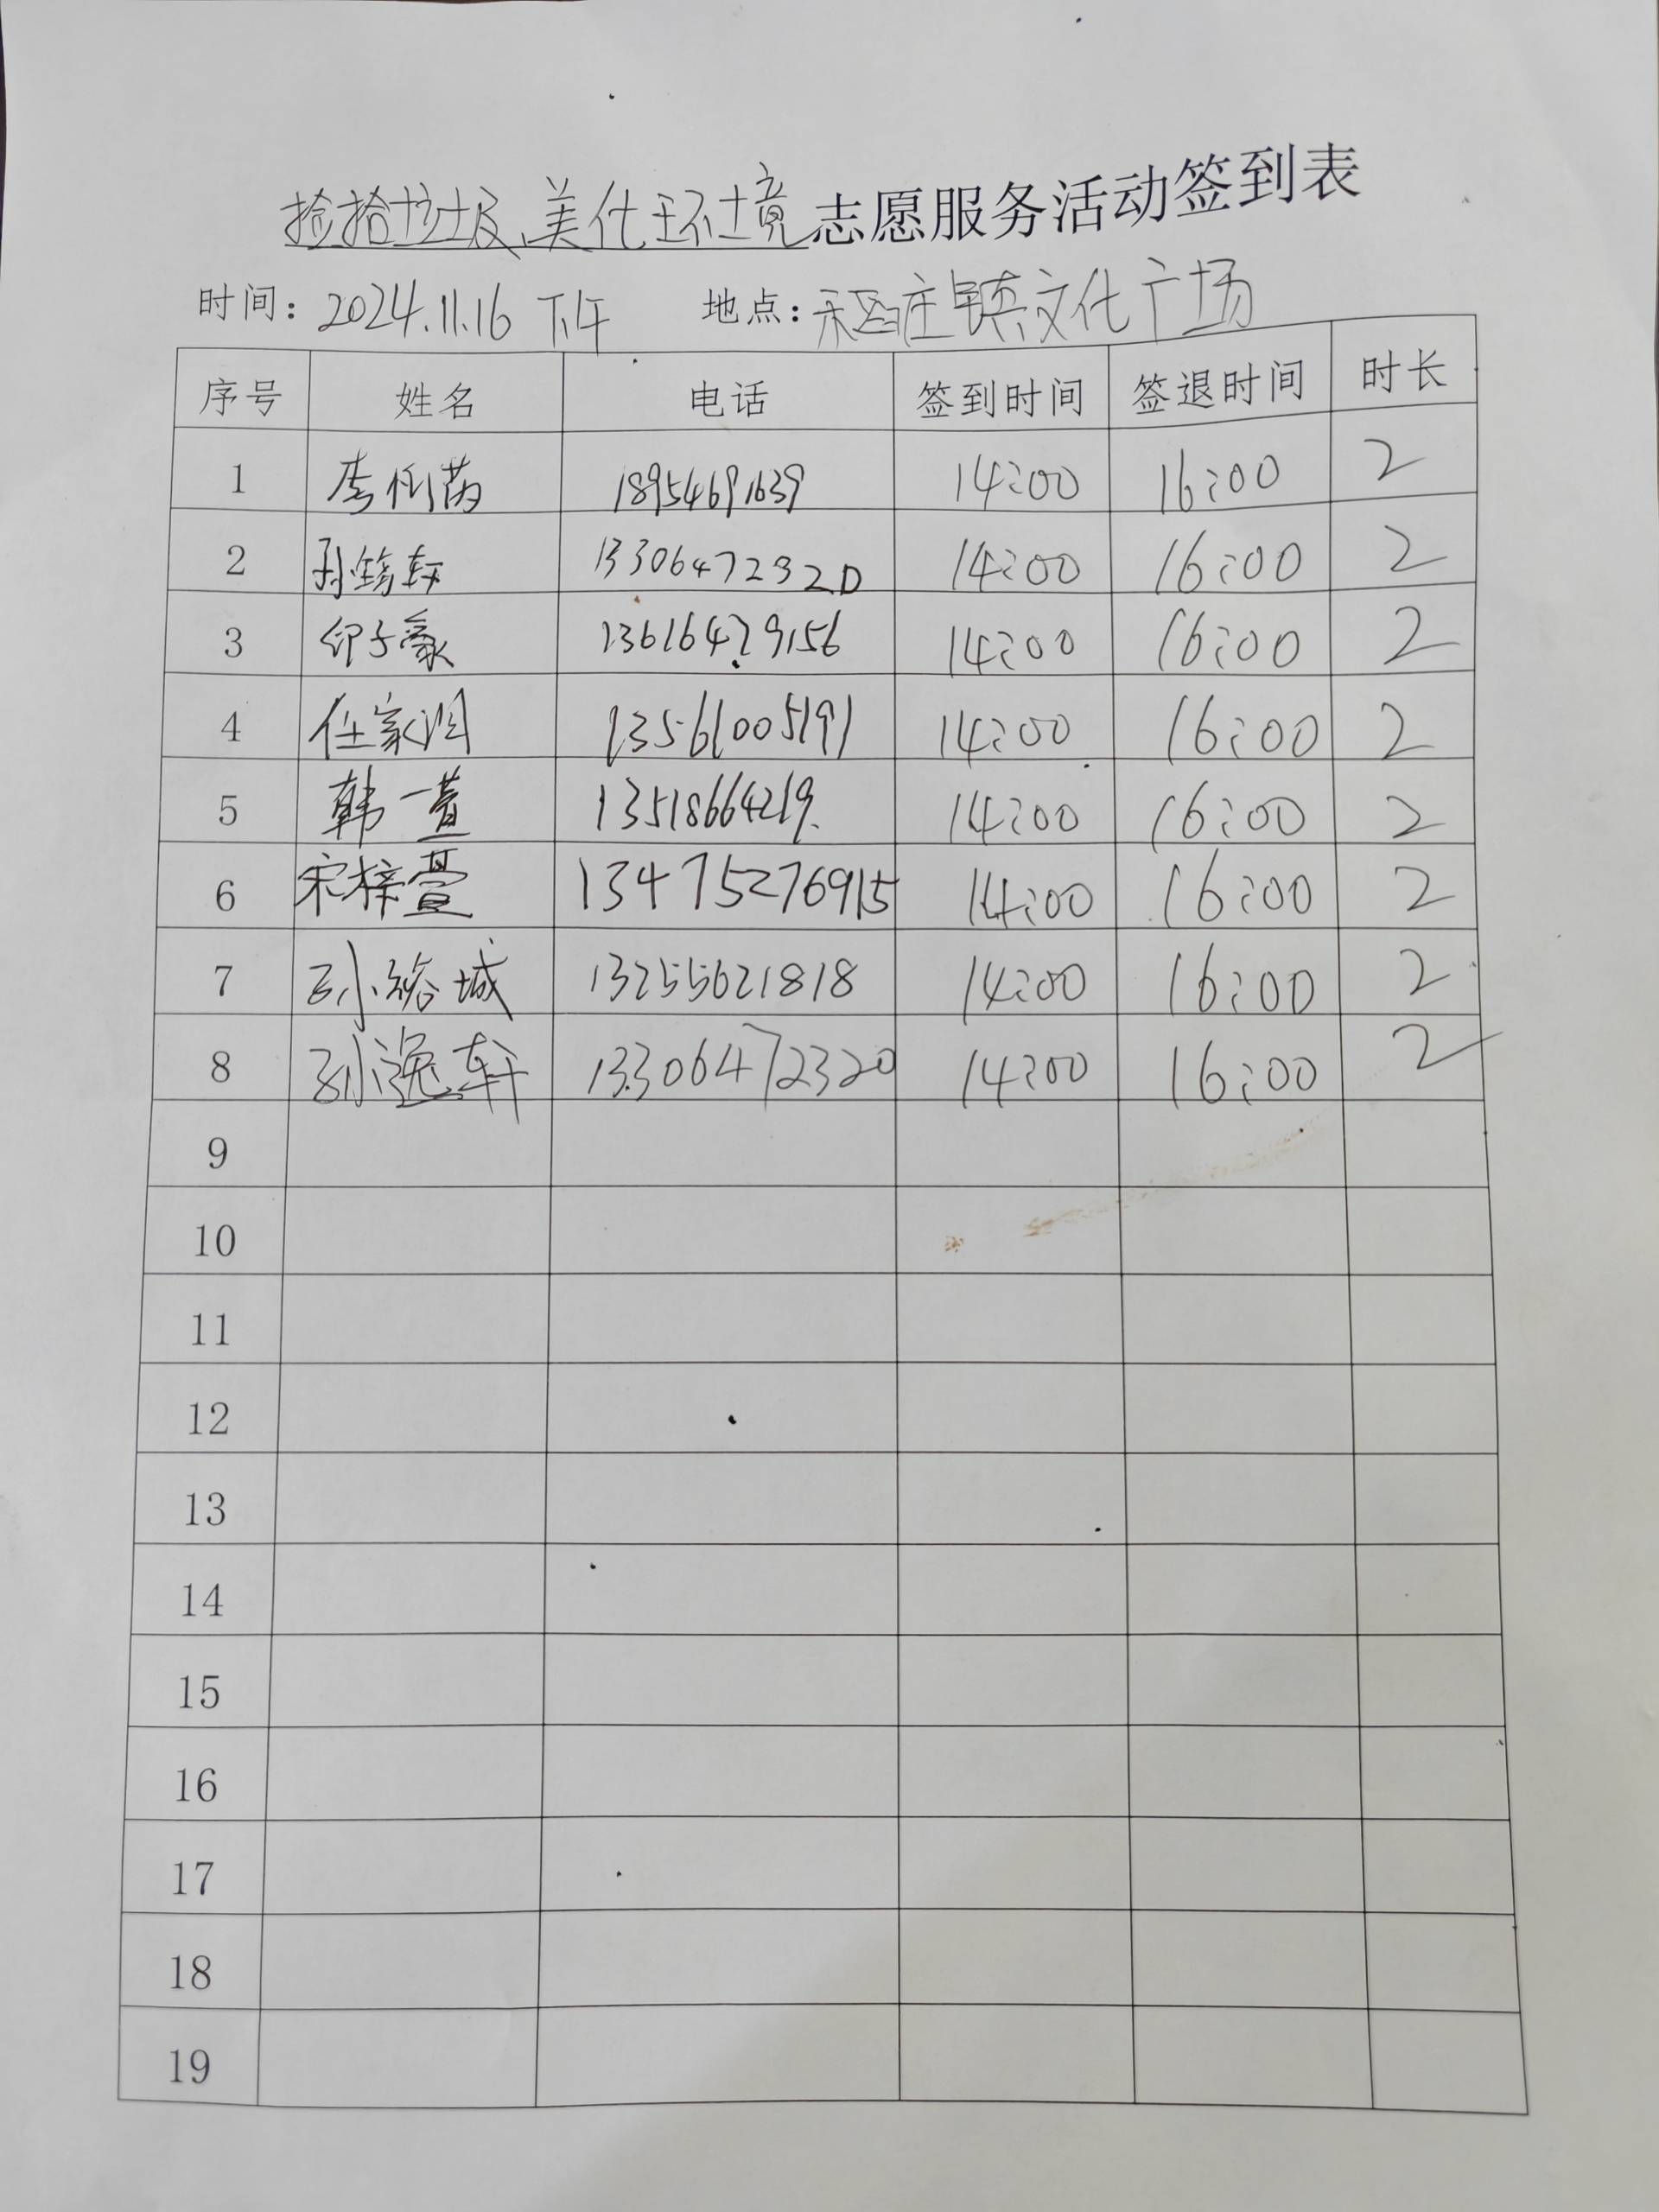 捡拾垃圾、美化环境志愿服务活动签到表
时间：2024.11.16 下午 地点：稻庄镇文化广场
序号 姓名 电话 签到时间 签退时间 时长
1 李 18954691639 14:00 16:00 2
2 孙 轩 13306472320 14:00 16:00 2
3 子豪 13616479156 14:00 16:00 2
4 任家 13561005191 14:00 16:00 2
5 韩一萱 13518664219 14:00 16:00 2
6 宋梓萱 13475276915 14:00 16:00 2
7 孙 城 13255621818 14:00 16:00 2
8 孙逸轩 13306472320 14:00 16:00 2
9
10
11
12
13
14
15
16
17
18
19